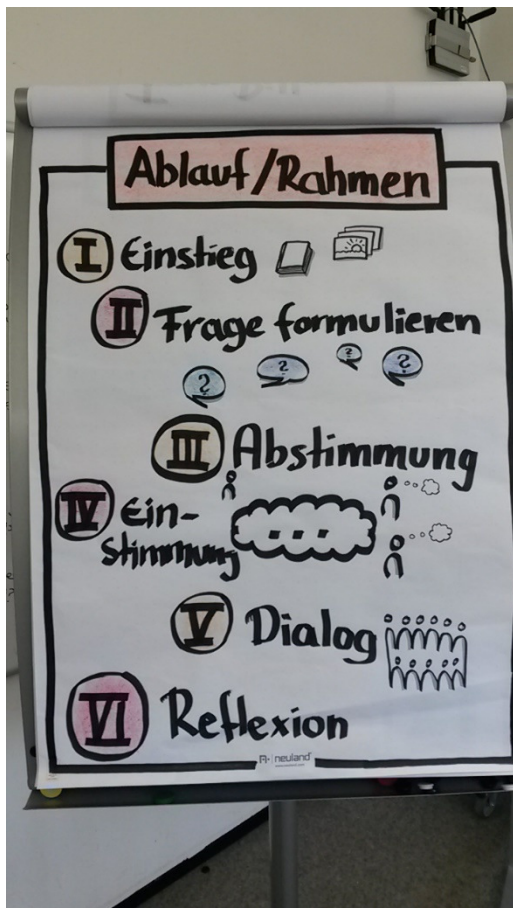 Ablauf/Rahmen
I Einstieg
II Frage formulieren
? ? ? ?
III Abstimmung
IV Ein-
stimmung
...
V Dialog
VI Reflexion
neuland